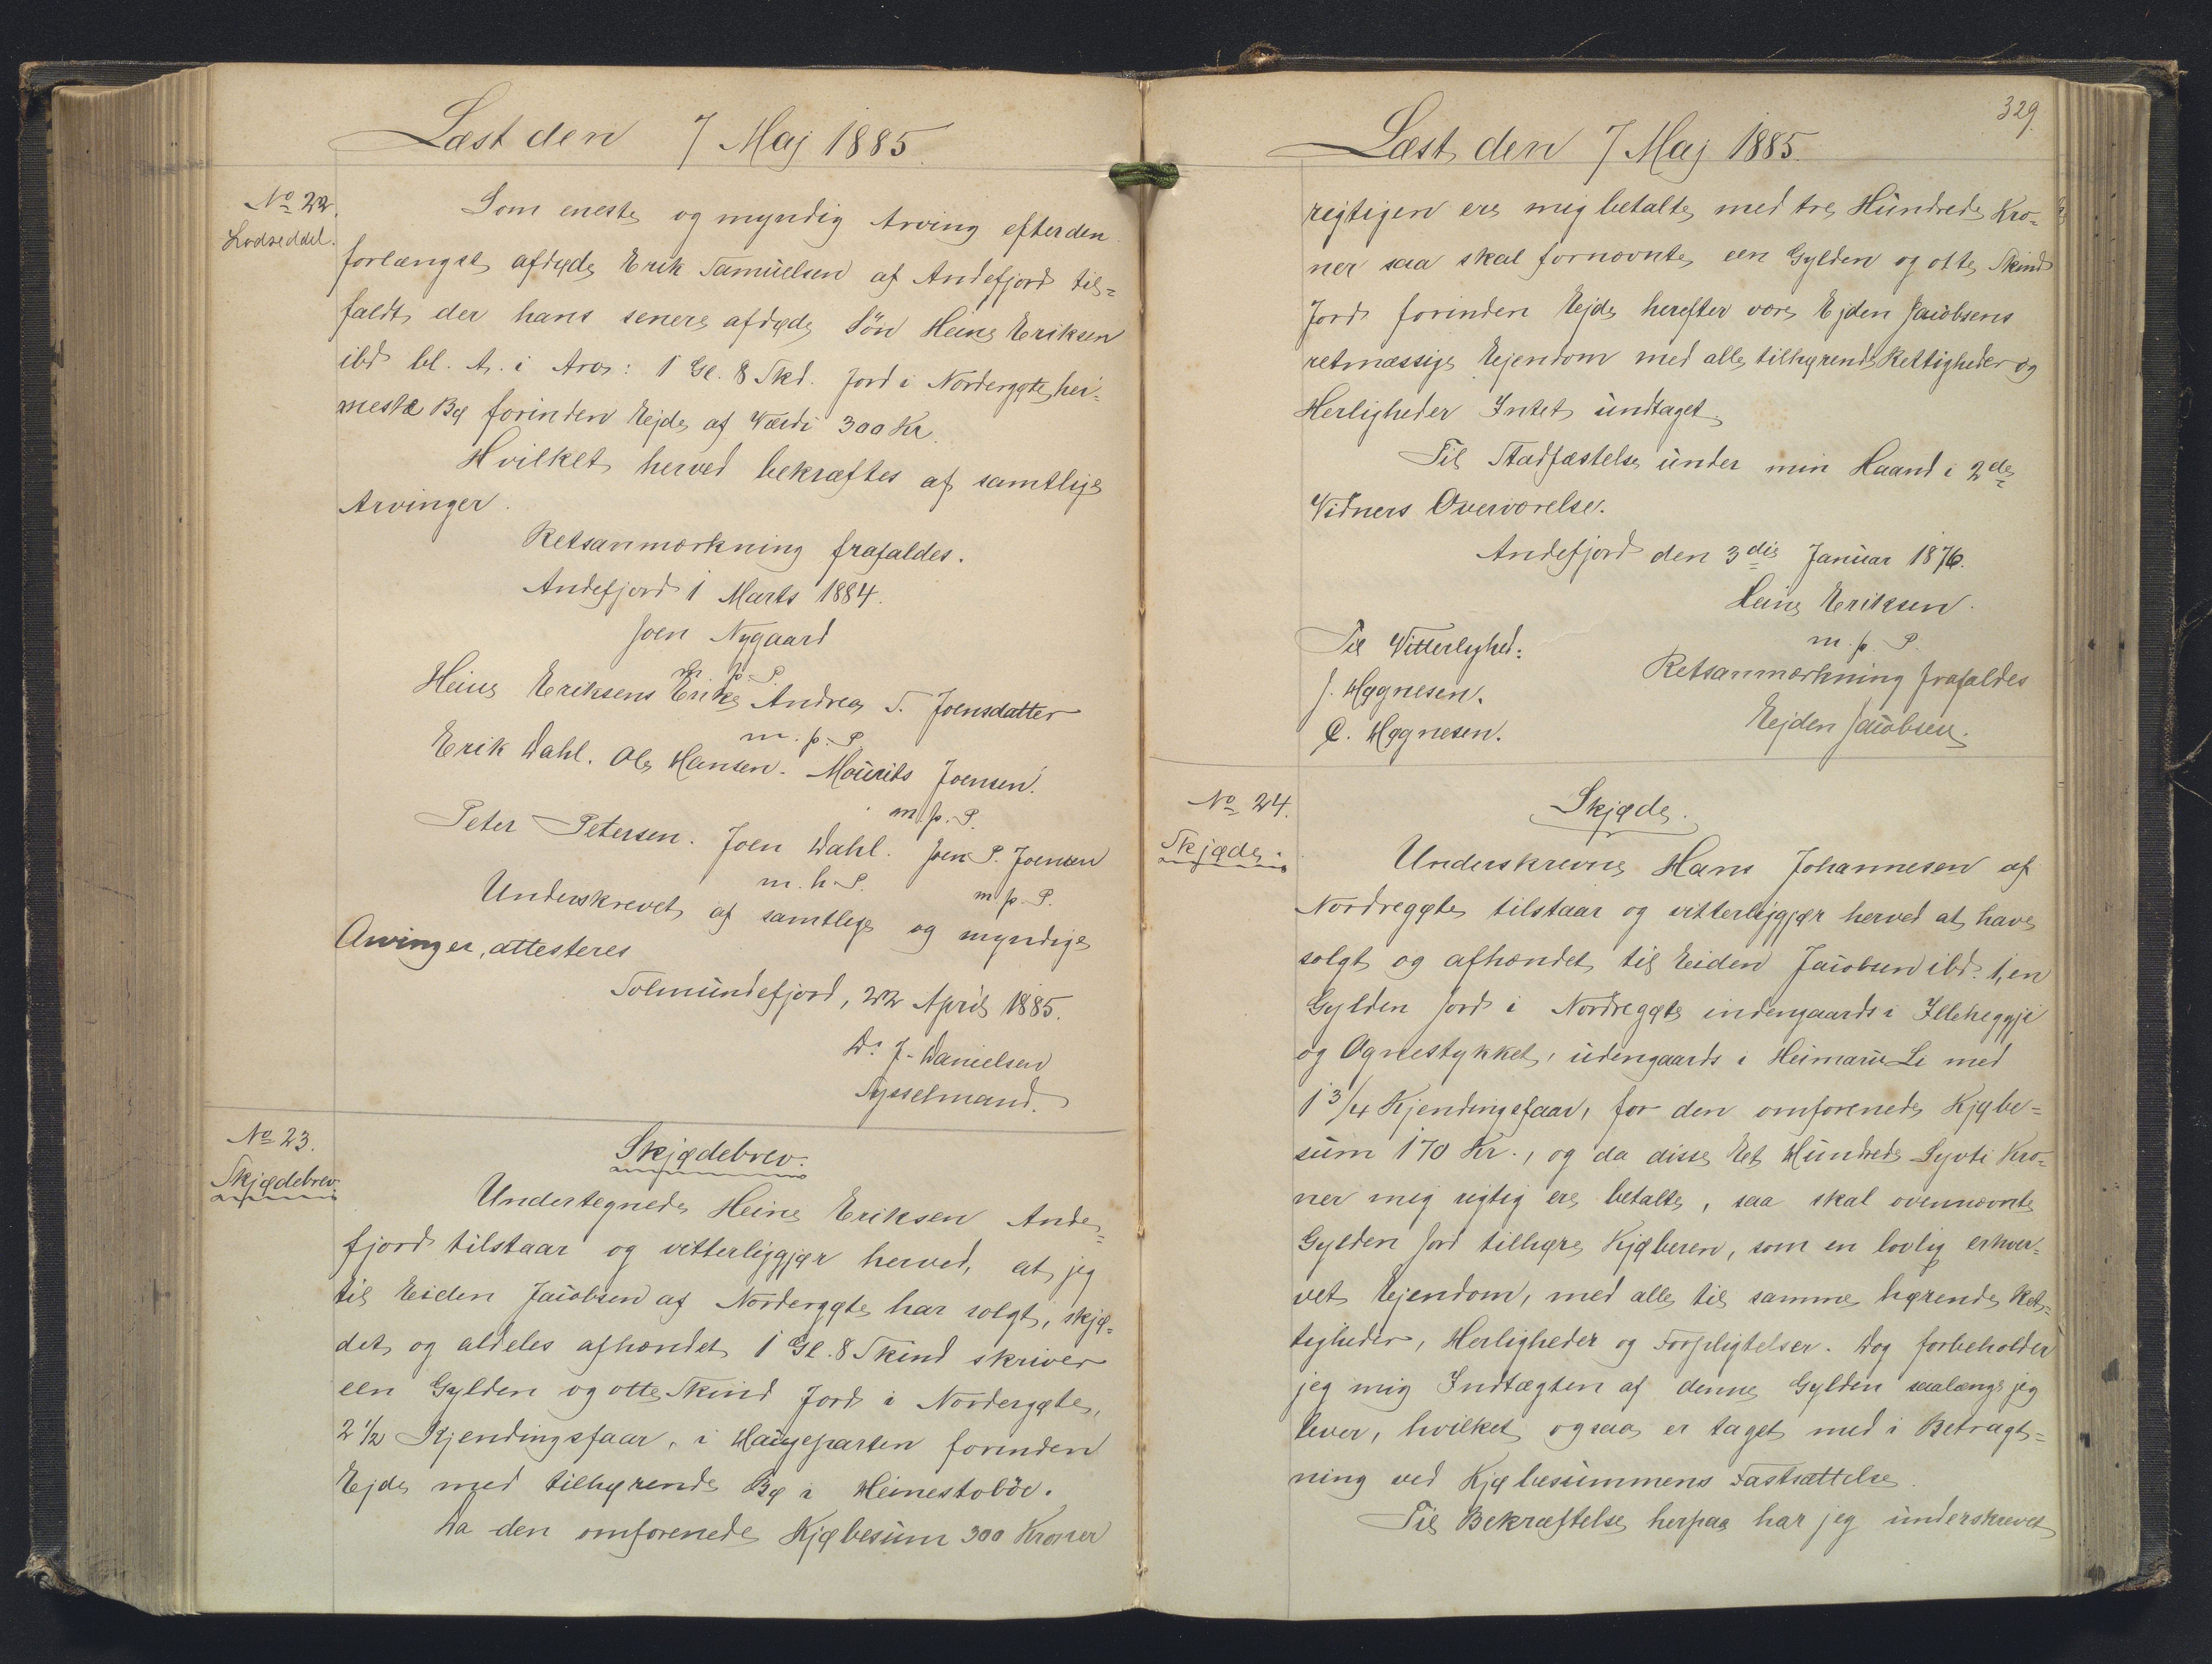 Læst den 7 Maj 1885.
No 22.
Lodseddel.
Som eneste og myndig Arving efter den
forlængst afdøde Erik Samuelsen af Andefjord til=
faldt der hans senere afdøde Søn Heine Eriksen
ibd bl. A. i Arv: 1 Gl. 8 Skd. Jord i Nordergøte hei=
mesta Bø forinden Eide af Værdi 300 Kr.
Hvilket herved bekræftes af samtlige
Arvinger.
Retsanmærkning frafaldes.
Andefjord 1 Marts 1884.
Joen Nygaard
m. p. P.
Heine Eriksens Enke Andrea S. Joensdatter
m. p. P.
Erik Dahl. Ole Hansen. Mourits Joensen.
m. p. P.
Peter Petersen. Joen Dahl. Joen P. Joensen
m. h. P. m. p. P.
Underskrevet af samtlige og myndige
Arvinger, attesteres
Solmundefjord, 22 April 1885.
D. J. Danielsen
Sysselmand.
No 23.
Skjødebrev.
Skjødebrev.
Undertegnede Heine Eriksen Ande=
fjord tilstaar og vitterliggjør herved, at jeg
til Eiden Jacobsen af Nordergøte har solgt, skjø=
det og aldeles afhændet 1 Gl. 8 Skind skriver
een Gylden og otte Skind Jord i Nordergøte,
2 1/2 Kjendingsfaar, i Haugeparten forinden
Ejde med tilhørende Bø i Heinestobör.
Da den omforenede Kjøbesum 300 Kroner
329.
Læst den 7 Maj 1885.
rigtigen ere mig betalte med tre Hundrede Kro=
ner saa skal fornævnte een Gylden og otte Skind
Jord forinden Ejde herefter være Ejden Jacobsens
retmæssige Eiendom med alle tilhørende Rettigheder og
Herligheder Intet undtaget.
Til Stadfæstelse under min Haand i 2de
Vidners Overværelse.
Andefjord den 3die Januar 1876.
Heine Eriksen.
m. p. P.
Til Vitterlighed:
J. Høgnesen.
C. Høgnesen.
Retsanmærkning frafaldes
Eejden Jacobsen.
No 24.
Skjøde.
Skjøde.
Underskrevne Hans Johannesen af
Nordregøte tilstaar og vitterliggjør herved at have
solgt og afhændet til Eiden Jacobsen ibd. 1, en
Gylden Jord i Nordregøte indengaards i Illeheggje
og Ognestykket, udengaards i Heimaru Li med
1 3/4 Kjendingsfaar, for den omforenede Kjøbe=
sum 170 Kr., og da disse Eet Hundrede Syvti Kro=
ner mig rigtig ere betalte, saa skal ovennævnte
Gylden Jord tilhøre Kjøberen, som en lovlig erhver=
vet Ejendom, med alle til samme hørende Ret=
tigheder, Herligheder og Forpligtelser. Dog forbeholder
jeg mig Indtægten af denne Gylden saalænge jeg
lever, hvilket ogsaa er taget med i Betragt=
ning ved Kjøbesummens Fastsættelse.
Til Bekræftelse herpaa har jeg underskrevet